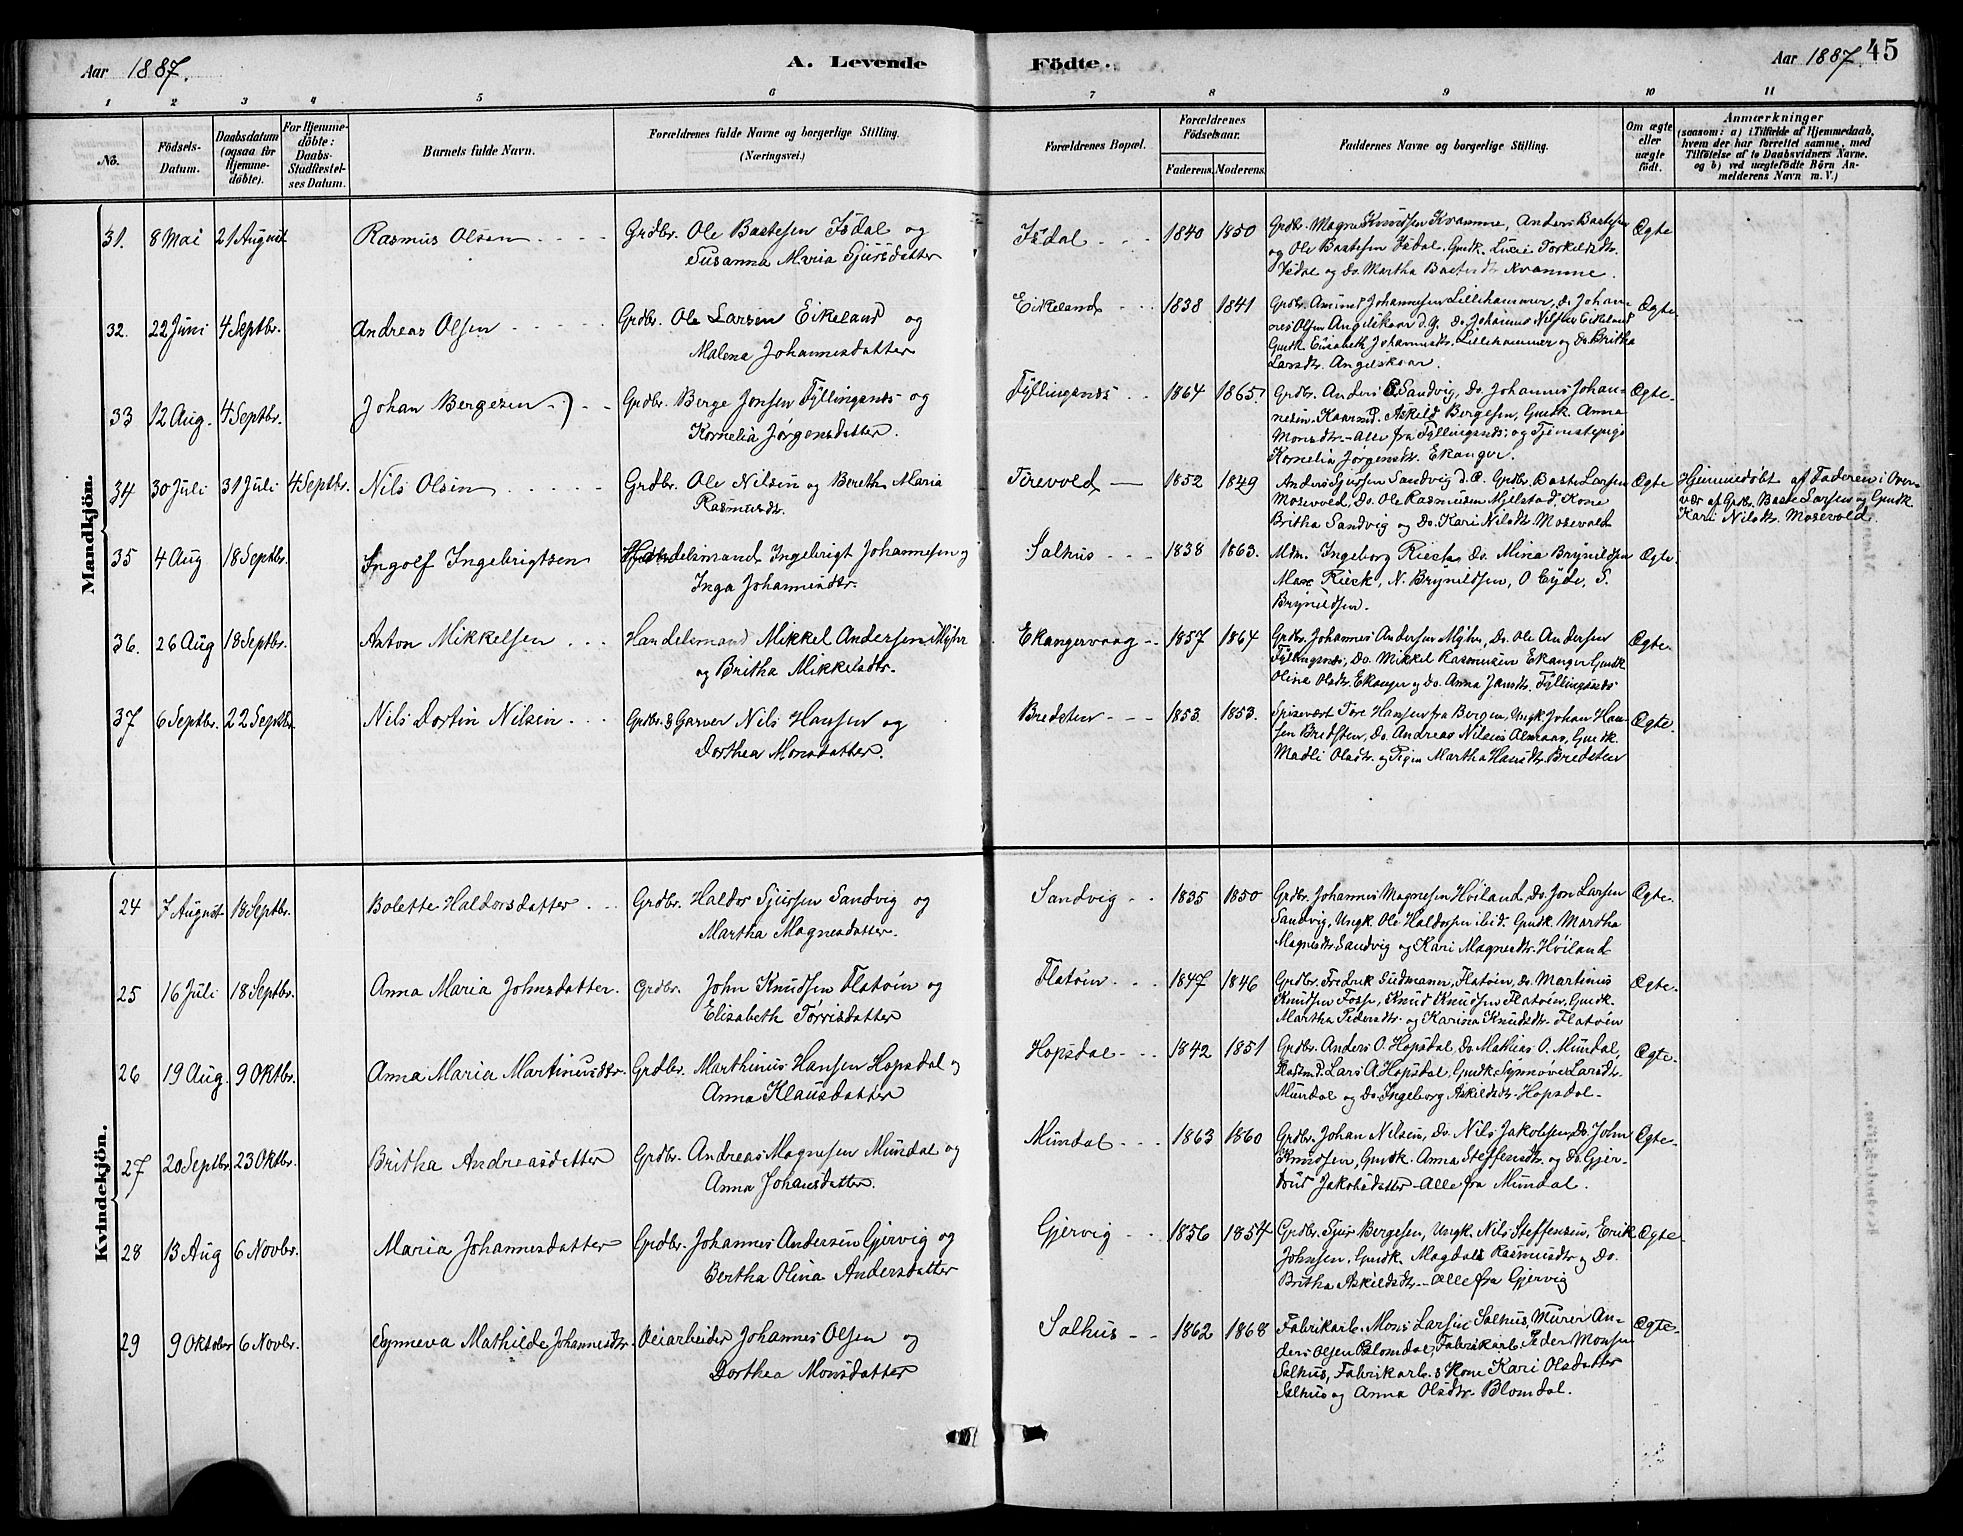 Aar 1887.
A. Levende
Födte.
Aar 1887.
45
1 2 3 4 5 6 7 8 9 10 11
No.
Födsels-
Datum.
Daabsdatum
(ogsaa for
Hjemme-
döbte).
For Hjemme-
döbte:
Daabs-
Stadfæstel-
ses Datum.
Barnets fulde Navn.
Forældrenes fulde Navne og borgerlige Stilling.
(Næringsvei.)
Forældrenes Bopæl.
Forældrenes
Födselsaar.
Faderens. Moderens.
Faddernes Navne og borgerlige Stilling.
Om ægte
eller
uægte
födt.
Anmærkninger
(saasom: a) i Tilfælde af Hjemmedaab,
hvem der har forrettet samme, med
Tilföielse af to Daabsvidners Navne.
og b) ved uægtefödte Börn An-
melderens Navn m. V.)
Mandkjön.
31. 8 Mai 21 August Rasmus Olsen Grdbr. Ole Bastesen Isdal og
Susanna Maria Sjursdatter
Isdal 1840 1850
Grdbr. Magne Knudsen Kvamme, Anders Bastesen
og Ole Bastesen Isdal, Gmdk. Lusi Torkelsdtr.
Isdal og Do. Martha Bastesdtr Kvamme.
Ægte
32. 22 Juni 4 Septbr. Andreas Olsen Grdbr. Ole Larsen Eikeland og
Malena Johannesdatter
Eikeland 1838 1841
Grdbr. Amund Johannesen Lillehammer, do Johan-
nes Olsen Angelskaar d.y. Do. Johannes Nilsen Eikeland
Gmdk. Elisabeth Johannesdtr. Lillehammer og Do. Britha
Larsdtr. Angelskaar.
Ægte.
33 12 Aug. 4 Septbr. Johan Bergesen Grdbr. Berge Jonsen Fyllingsnes og
Kornelia Jørgensdatter.
Fyllingsnes 1864 1865.
Grdbr. Anders Sandvig, Do. Johannes Johan-
nesen, Kaarmd. Askild Bergesen, Gmdk. Anna
Monsdtr. - Alle fra Fyllingsnes, og Tjenestepige
Kornelia Jørgensdtr. Ekanger.
Ægte.
34 30 Juli 31 Juli 4 Septbr. Nils Olsen Grdbr. Ole Nilsen og Bereth Maria
Rasmusdtr.
Tirevold 1852 1849
Anders Sjursen Sandvig d.Æ. Grdbr. Baste Larsen
Mosevold, Do. Ole Rasmusen Mjelstad, Kone
Britha Sandvig og Do. Kari Nilsdtr. Mosevold
Ægte
Hjemmedøbt af Faderen i Over-
vær af Grdbr. Baste Larsen og Gmdk.
Kari Nilsdtr. Mosevold.
35 4 Aug 18 Septbr. Ingolf Ingebrigtsen Handelsmand Ingebrigt Johannesen og
Inga Johannesdtr.
Salhus 1838 1863.
Mdm. Ingeborg Rieck, Do. Mina Brynildsen
Max Rieck, N. Brynildsen, O Eyde, S.
Brynildsen.
Ægte
36. 26 Aug 18 Septbr. Anton Mikkelsen Handelsmand Mikkel Andersen Myhr
og Britha Mikkelsdtr.
Ekangervaag 1857 1864
Grdbr. Johannes Andersen Myhr, Do. Ole Andersen
Fyllingsnes, Do. Mikkel Rasmusen Ekanger Gmdk
Olina Olsdtr. Ekanger og Do. Anna Jansdtr. Fyllingsnes
Ægte.
37 6 Septbr. 22 Septbr Nils Dortin Nilsen Grdbr. & Garver Nils Hansen og
Dorthea Monsdatter.
Bredsten 1853. 1853.
Spisevært Tore Hansen fra Bergen, Ungk. Johan Han-
sen Bredsten, Do. Andreas Nilsen Almaas, Gmdk.
Madli Olsdtr. og Pigen Martha Hansdtr. Bredsten
Ægte.
Kvindekjön.
24 7 August 18 Septbr. Bolette Haldorsdatter Grdbr. Haldor Sjursen Sandvig og
Martha Magnesdatter.
Sandvig 1835 1850
Grdbr. Johannes Magnesen Høiland, Do. Jon Larsen
Sandvig, Ungk. Ole Haldorsen ibid. Gmdk. Martha
Magnesdtr. Sandvig og Kari Magnesdtr. Høiland
Ægte.
25 16 Juli 18 Septbr. Anna Maria Johnsdatter. Grdbr. John Knudsen Flatøen og
Elizabeth Torrisdatter
Flatøen 1847 1846
Grdbr. Fredrik Gudmann, Flatøen, Do. Martinus
Knudsen Fosse, Knud Knudsen Flatøen, Gmdk.
Martha Pedersdtr. og Karina Knudsdtr. Flatøen
Ægte.
26 19 Aug. 9 Oktbr. Anna Maria Martinusdtr. Grdbr. Marthinus Hansen Hopsdal og
Anna Klausdatter
Hopsdal 1842 1851
Grdbr. Anders O. Hopsdal, Do. Mathias O. Mundal,
Lars A. Hopsdal, Gmdk. Synnøve Larsdtr.
Mundal og Do. Ingeborg Askildsdtr. Hopsdal.
Ægte.
27 20 Septbr 23 Oktbr. Britha Andreasdatter Grdbr. Andreas Magnesen Mundal og
Anna Johansdatter.
Mundal 1863 1860
Grdbr. Johan Nilsen, Do. Nils Jakobsen, Do. John
Knudsen, Gmdk. Anna Steffensdtr. og Do. Gjer-
trud Jakobsdatter - Alle fra Mundal.
Ægte.
28 13 Aug 6 Novbr. Maria Johannesdatter Grdbr. Johannes Andersen Gjervig og
Bertha Olina Andersdatter
Gjervig 1856 1854
Grdbr. Sjur Bergesen, Ungk. Nils Steffensen, Erik
Johnsen, Gmdk. Magdale Rasmusdtr og Do.
Britha Askildsdtr. - Alle fra Gjervig
Ægte.
29 9 Oktober 6 Novbr. Synneva Mathilde Johannesdtr. Veiarbeider Johannes Olsen og
Dorthea Monsdatter
Salhus 1862 1868
Fabrikarb. Mons Larsen Salhus, Murer An-
ders Olsen Blomdal, Fabrikarb. Peder Monsen
Salhus, Fabrikarb.s Kone Kari Olsdatter
Salhus og Anna Olsdtr. Blomdal.
Ægte.